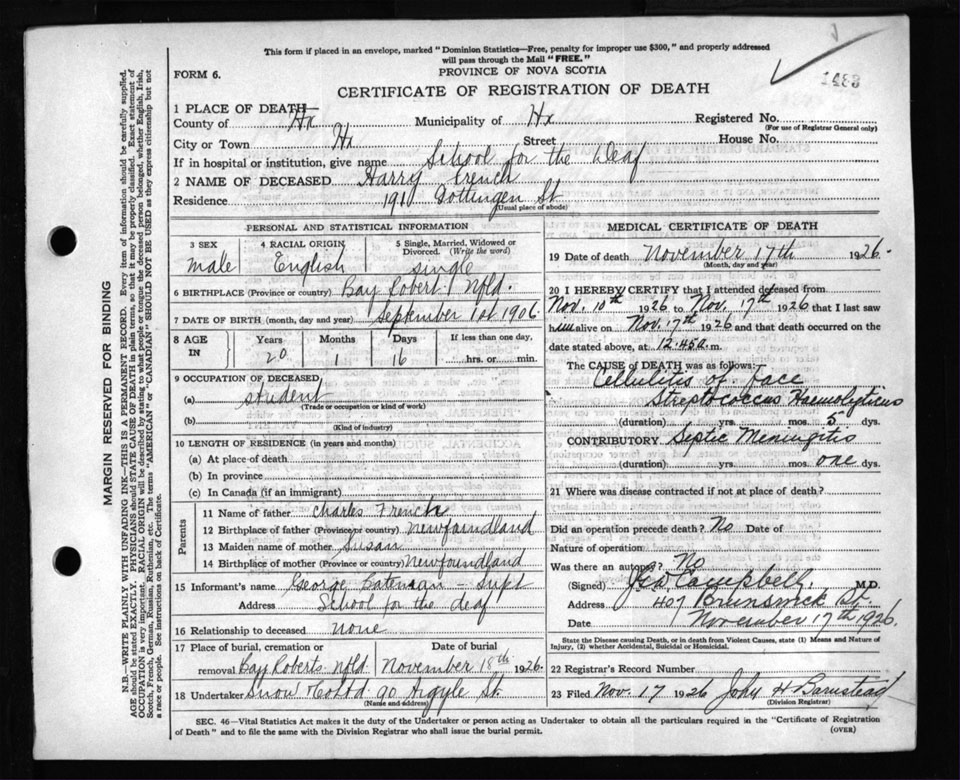 This form if placed in an envelope, marked "Dominion Statistics—Free, penalty for improper use $300," and properly addressed
will pass through the Mail "FREE."
FORM 6.
PROVINCE OF NOVA SCOTIA
1483
CERTIFICATE OF REGISTRATION OF DEATH
1 PLACE OF DEATH—
County of Hx Municipality of Hx Registered No.
(For use of Registrar General only)
City or Town Hx Street House No.
If in hospital or institution, give name School for the Deaf
2 NAME OF DECEASED Harry French
Residence 191 Gottingen St
(Usual place of abode)
PERSONAL AND STATISTICAL INFORMATION
3 SEX 4 RACIAL ORIGIN 5 Single, Married, Widowed or Divorced. (Write the word)
male English single
6 BIRTHPLACE (Province or country) Bay Robert Nfld.
7 DATE OF BIRTH (month, day and year) September 1st 1906
8 AGE IN Years Months Days If less than one day,
20 1 16 hrs. or min.
9 OCCUPATION OF DECEASED
(a) student
(Trade or occupation or kind of work)
(b)
(Kind of industry)
10 LENGTH OF RESIDENCE (in years and months)
(a) At place of death
(b) In province
(c) In Canada (if an immigrant)
Parents
11 Name of father Charles French
12 Birthplace of father (Province or country) Newfoundland
13 Maiden name of mother Susan
14 Birthplace of mother (Province or country) Newfoundland
15 Informant's name George Bateman - Supt
Address School for the deaf
16 Relationship to deceased none
17 Place of burial, cremation or removal Bay Roberts Nfld Date of burial November 18th 1926
18 Undertaker Snow Co Ltd 90 Argyle St.
(Name and address)
MEDICAL CERTIFICATE OF DEATH
19 Date of death November 17th 1926.
(Month, day and year)
20 I HEREBY CERTIFY that I attended deceased from
Nov. 10th 1926 to Nov. 17th 1926 that I last saw
him alive on Nov. 17th 1926 and that death occurred on
date stated above, at 12.45 a. m.
The CAUSE of DEATH was as follows:
Cellulitis of Face
Streptococcus Haemolyticus
(duration) yrs. mos. 5 dys.
CONTRIBUTORY Septic Meningitis
(duration) yrs. mos. one dys.
21 Where was disease contracted if not at place of death?
Did an operation precede death? No Date of
Nature of operation
Was there an autopsy? No
(Signed) Campbell, M.D.
Address 407 Brunswick St.
Date November 17th 1926.
State the Disease causing Death, or in death from Violent Causes, state (1) Means and Nature of
Injury, (2) whether Accidental, Suicidal or Homicidal.
22 Registrar's Record Number
23 Filed Nov. 17 1926 John H Barnstead
(Division Registrar)
SEC. 46—Vital Statistics Act makes it the duty of the Undertaker or person acting as Undertaker to obtain all the particulars required in the "Certificate of Registration
of Death" and to file the same with the Division Registrar who shall issue the burial permit. (OVER)
MARGIN RESERVED FOR BINDING
N.B.—WRITE PLAINLY, WITH UNFADING INK—THIS IS A PERMANENT RECORD. Every item of information should be carefully supplied.
AGE should be stated EXACTLY. PHYSICIANS should STATE CAUSE OF DEATH in plain terms, so that it may be properly classified. Exact statement of
OCCUPATION is very important. RACIAL ORIGIN will be described by stating to what people or tongue the deceased person belonged, whether English, Irish,
Scotch, French, German, Russian, Ruthenian, etc. The terms "AMERICAN" or "CANADIAN" SHOULD NOT BE USED as they express citizenship but not
a race or people. See instructions on back of Certificate.